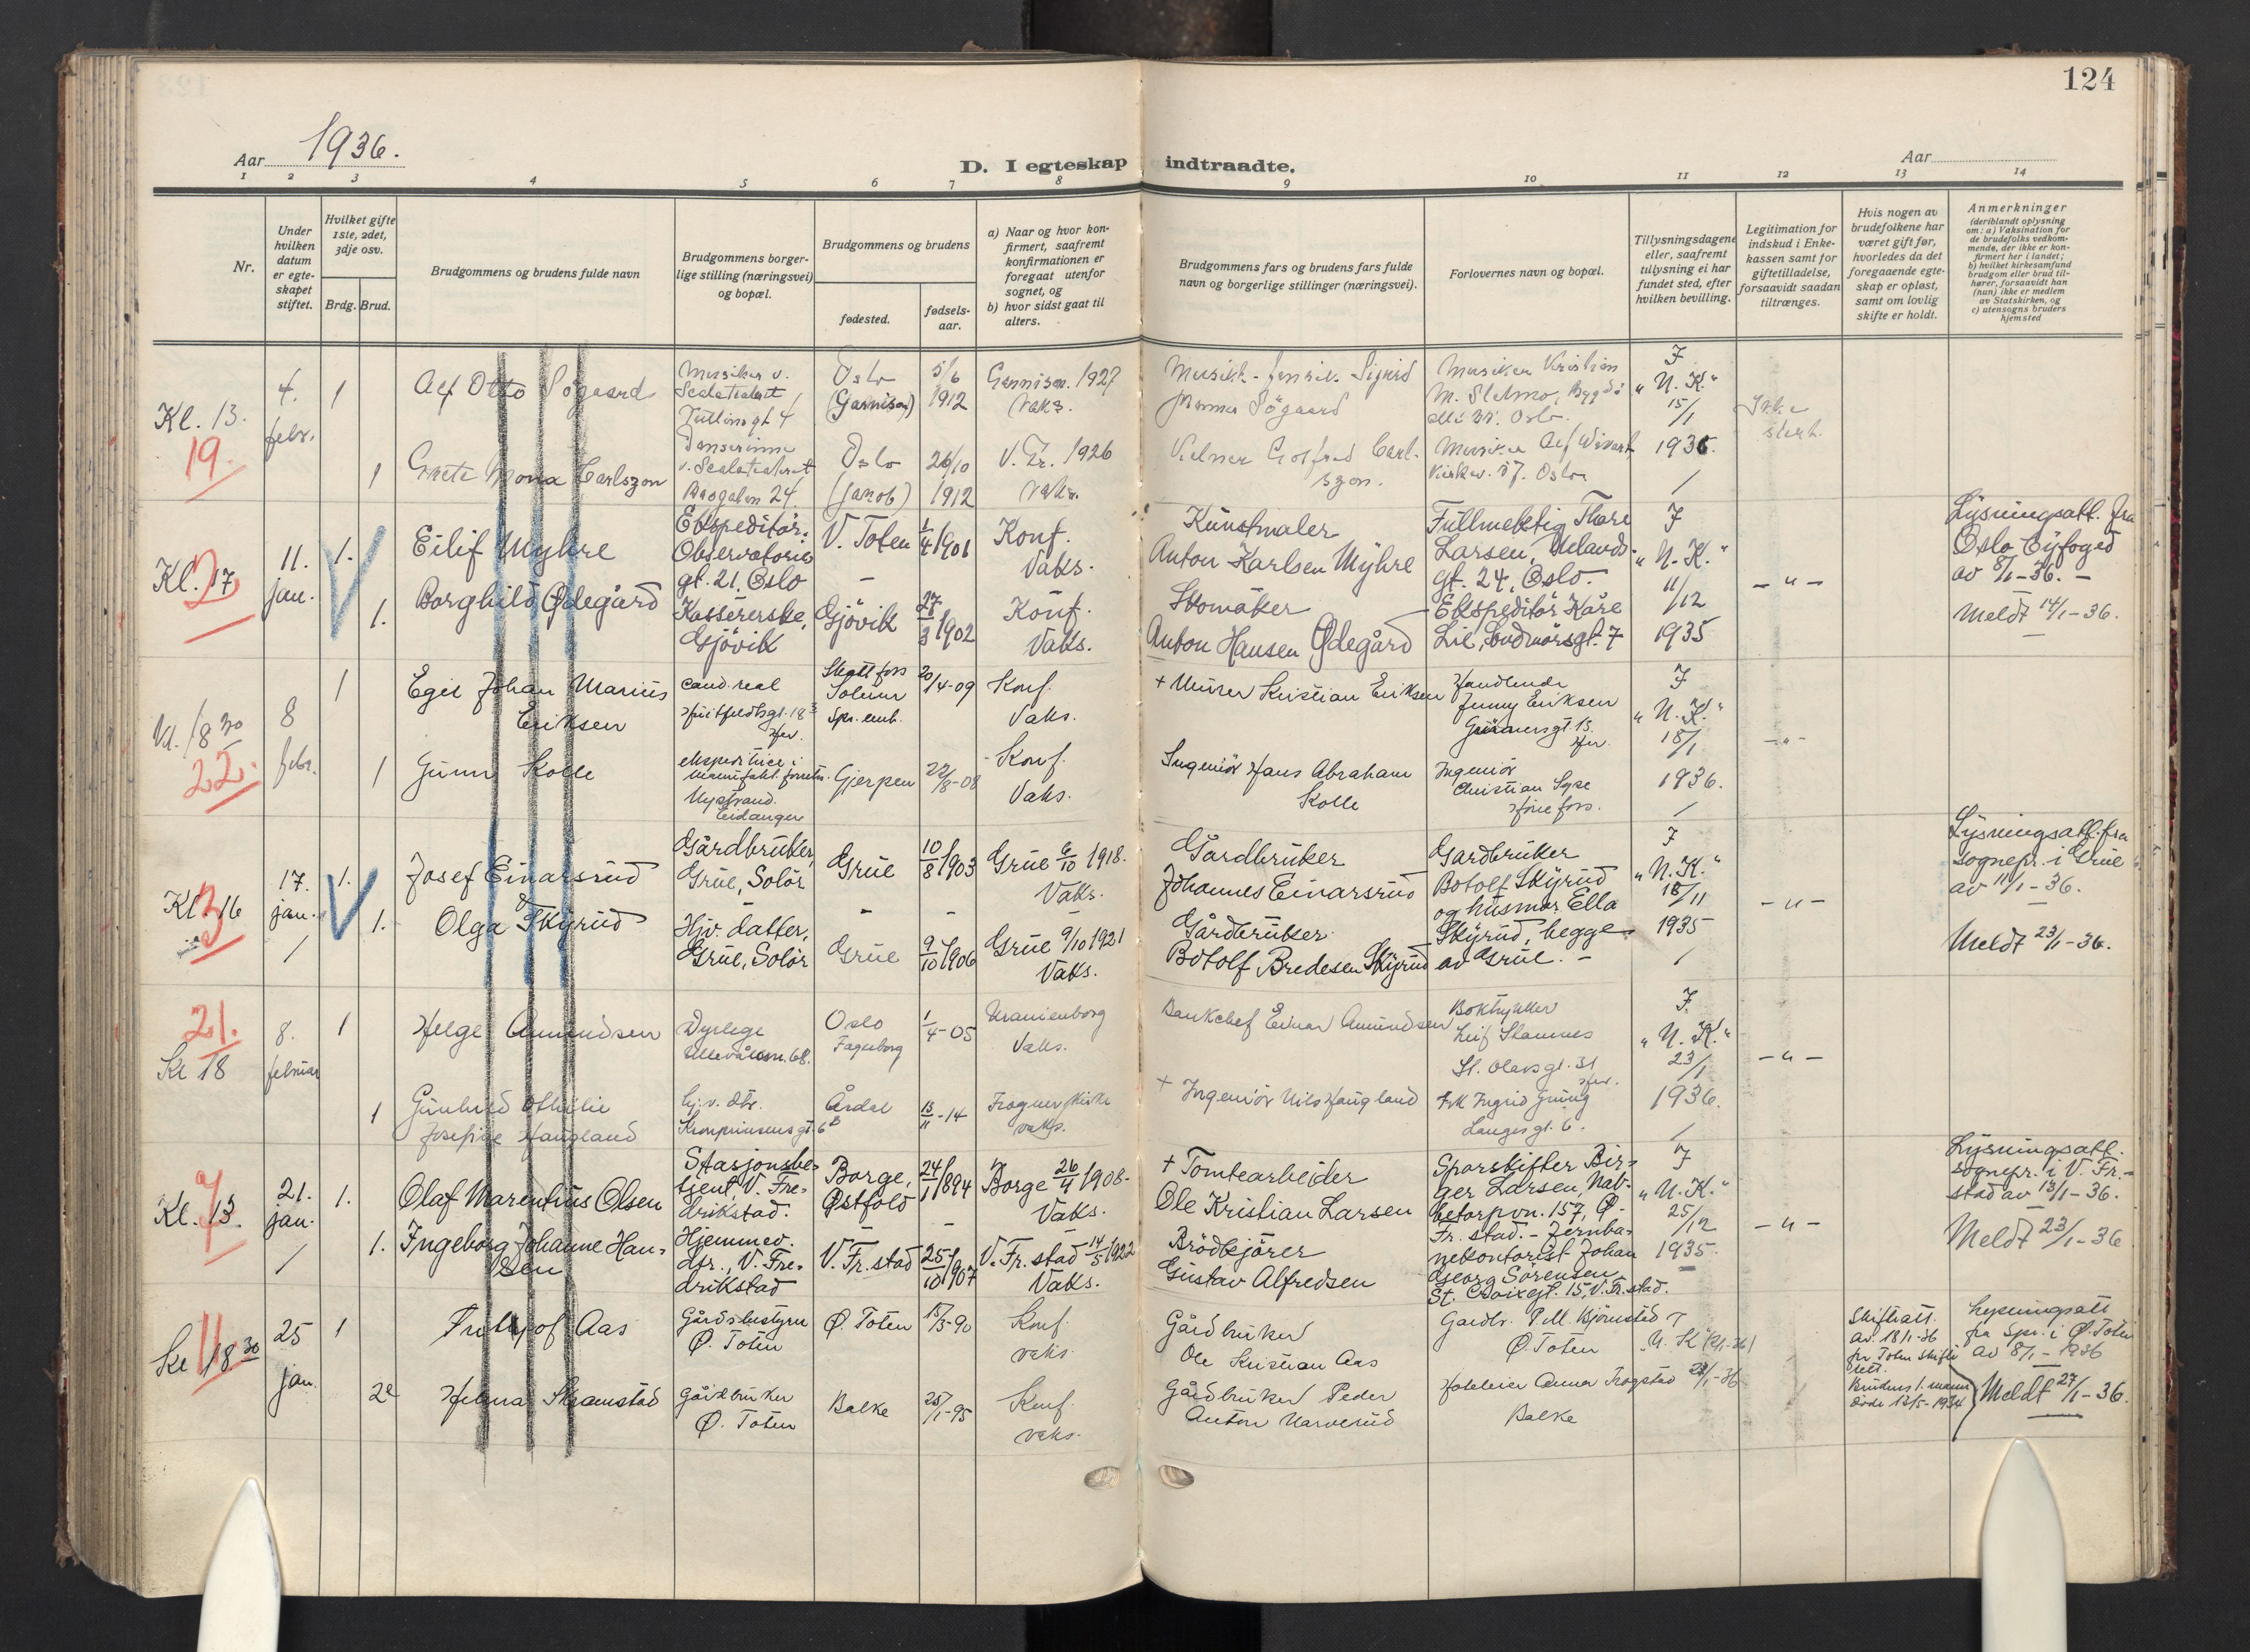 124
Aar 1936.
D. I egteskap indtraadte.
Aar
1 2 3 4 5 6 7 8 9 10 11 12 13 14
Nr.
Under hvilken datum er egteskapet stiftet.
Hvilket gifte 1ste, 2det, 3dje osv.
Brdg. Brud.
Brudgommens og brudens fulde navn
Brudgommens borger-
lige stilling (næringsvei)
og bopæl.
Brudgommens og brudens
fødested.
fødsels-
aar.
a) Naar og hvor kon-
firmert, saafremt
konfirmationen er
foregaat utenfor
sognet, og
b) hvor sidst gaat til
alters.
Brudgommens fars og brudens fars fulde
navn og borgerlige stillinger (næringsvei).
Forlovernes navn og bopæl.
Tillysningsdagene
eller, saafremt
tillysning ei har
fundet sted, efter
hvilken bevilling.
Legitimation for
indskud i Enke-
kassen samt for
giftetilladelse,
forsaavidt saadan
tiltrænges.
Hvis nogen av
brudefolkene har
været gift før,
hvorledes da det
foregaaende egte-
skap er opløst,
samt om lovlig
skifte er holdt.
Anmerkninger
(deriblandt oplysning
om: a) Vaksination for
de brudefolks vedkom-
mende, der ikke er kon-
firmert her i landet;
b) hvilket kirkesamfund
brudgom eller brud til-
hører, forsaavidt han
(hun) ikke er medlem
av Statskirken, og
c) utensogns bruders
hjemsted
Kl. 13.
19.
4.
febr.
1
Alf Otto Søgaard
Musiker v.
Scalateatret
Tullinsgt 4
Oslo
(Garnison)
5/6
1912
Garnison. 1927
Vaks.
Søgaard
Musiker Kristian
Oslo.
F
"U.K."
15/1
1936.
Ikke
sterb.
1
Grete Mona Carlszon
Danserinne
v. Scalateatret
24
Oslo
(Jakob)
26/10
1912
V. Fr. 1926
Vaks.
Carl-
szon.
Musiker Alf
Oslo
Kl. 17
2
11.
jan.
1.
Eilif Myhre
Ekspeditør.
Observatorie
gt. 21, Oslo
V. Toten
1/4 1901
Konf.
Vaks.
Kunstmaler
Anton Karlsen Myhre
Fullmektig Thore
Larsen, Uelands-
gt. 24, Oslo.
F
"U.K."
11/12
1935
- " -
Lysningsatt. fra
Oslo Byfoged
av 8/1-36. -
Meldt 14/1-36.
1.
Borghild Ødegård
Kassererske,
Gjövik
Gjövik
27/3 1902
Konf.
Vaks.
Skomaker
Anton Hansen Ødegård
Ekspeditör Kåre
Lie, Sondmörsgt. 7
8 30
22.
8
febr.
1
Egil Johan Marius
Eriksen
cand. real
Huitfeldtsgt. 18
her.
Skottfoss
Solum
20/4-09
Konf.
Vaks.
+ Murer Kristian Eriksen
Handlende
Jenny Eriksen
her.
F
"U.K."
18/1
1936.
- " -
1
Gunn Kolle
ekspeditrice i
manufakt. forretn.
Nystrand.
Eidanger
Gjerpen
22/8-08
Konf.
Vaks.
Ingeniör Hans Abraham
Kolle
Ingeniör
Christian
Hönefoss.
Kl. 16
3
17.
jan.
1.
Josef Einarsrud
Gårdbruker,
Grue, Solör
Grue
10/8 1903
Grue 6/10 1918.
Vaks.
Gårdbruker
Johannes Einarsrud
Gardbruker
Botolf Skyrud
og husmor Ella
Skyrud, begge
av Grue. -
F
"U.K."
18/11
1935
- " -
Lysningsatt. fra
sognepr. i Grue
av 11/1-36.
Meldt 23/1-36.
1.
Olga Skyrud
Hjv. datter,
Grue, Solör
Grue
9/10 1906
Grue 9/10 1921
Vaks.
Gårdbruker
Botolf Bredesen Skyrud
21.
Kl 18
8.
februar
1
Helge Amundsen
Dyrlege
Ullevålsvn. 68.
Oslo
Fagerborg
1/4-05
Uranienborg
Vaks.
Bankchef Einar Amundsen
Boktrykker
Leif Stamnes
St. Olavsgt. 31
her.
F.
"U.K."
23/1
1936.
- " -
1
Gunhild Othilie
Josefine Haugland
hj.v. dtr.
Kronprinsens gt. 6
Årdal
13/11-14
Frogner kirke
vaks.
+ Ingeniör Nils Haugland
Frk Ingrid
Langesgt. 6.
Kl. 13.
7
21.
jan.
1.
Olaf Marentius Olsen
Stasjonsbe-
tjent, V. Fre-
drikstad.
Borge,
Østfold
24/1 1894
Borge 26/4 1908.
Vaks.
+ Tomtearbeider
Ole Kristian Larsen
Sporskifter Bir-
ger Larsen, Nab-
betorpvn. 157, Ø.
Fr. stad. - Jernba-
nekontorist Johan
Georg Sörensen
St. Croixgt. 15, V. Fr. stad.
F
"U.K."
25/12
1935.
- " -
Lysningsatt.
sognepr. i V. Fr.-
stad av 13/1-36.
Meldt 23/1-36
1.
Ingeborg Johanne Han-
sen
Hjemmev.
dtr., V. Fre-
drikstad
V. Fr. stad
25/10 1907
V. Fr. stad 14/5 1922
Vaks.
Brödkjörer
Gustav Alfredsen
Kl 18 30
11.
25
jan.
1
Frithjof Aas
Gårdsbestyrer
Ø. Toten
Ø. Toten
15/5-90
Konf.
vaks.
Gårdbruker
Ole Kristian Aas
Gardbr. P. M. Björnstad
Ø. Toten
F
U. K
Skifteatt.
av 18/1-36
fra Toten skifte
rett.
Brudens 1. mann
döde 12/5-1934
Lysningsatt
fra Spr. i Ø. Toten
av 8/1-1936
Meldt 27/1-36.
2e
Helena Skramstad
Gårdbruker
Ø. Toten
Balke
25/1-95
Konf.
vaks.
Gårdbruker Peder
Anton Narverud
Anna
Balke